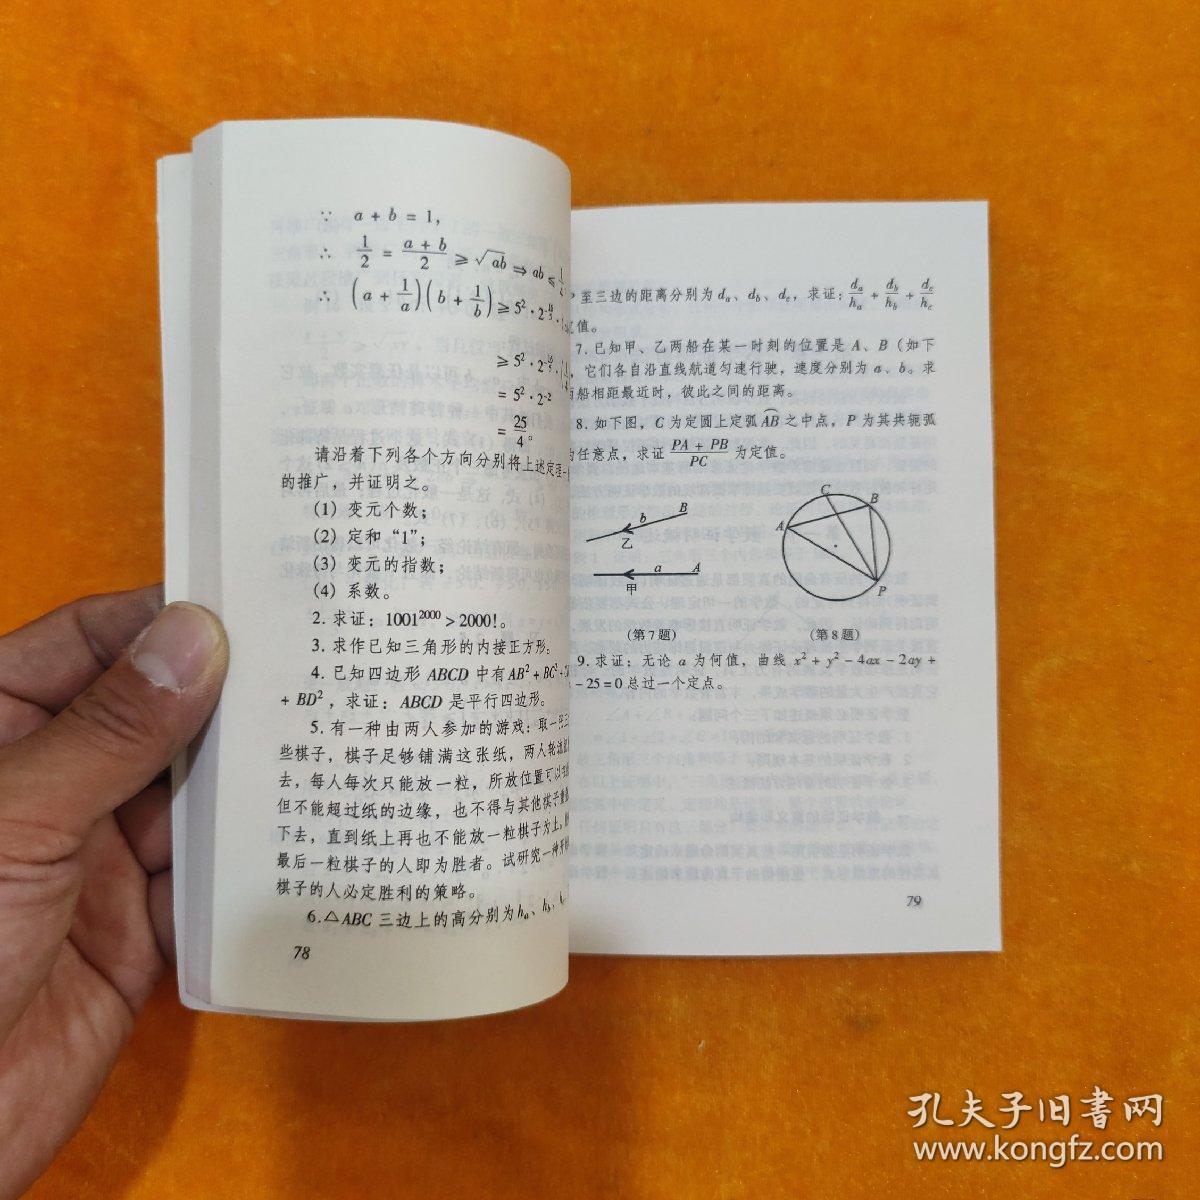 ∵ a + b = 1,
∴ 1/2 = (a + b)/2 ≥ √ab ⇒ ab ≤ 1/4
∴ (a + 1/a)(b + 1/b) ≥ 5² · 2
≥ 5² · 2
= 5² · 2⁻²
= 25/4。
请沿着下列各个方向分别将上述定理一
的推广，并证明之。
(1) 变元个数；
(2) 定和“1”；
(3) 变元的指数；
(4) 系数。
2. 求证：1001²⁰⁰⁰ > 2000!。
3. 求作已知三角形的内接正方形。
4. 已知四边形 ABCD 中有 AB² + BC² +
+ BD²，求证：ABCD 是平行四边形。
5. 有一种由两人参加的游戏：取一
些棋子，棋子足够铺满这张纸，两人轮流
去，每人每次只能放一粒，所放位置可以
但不能超过纸的边缘，也不得与其他棋子重
下去，直到纸上再也不能放一粒棋子为上，
最后一粒棋子的人即为胜者。试研究一种
棋子的人必定胜利的策略。
6. △ABC 三边上的高分别为 hₐ、h_b、
78
至三边的距离分别为 dₐ、d_b、d_c，求证：dₐ/hₐ + d_b/h_b + d_c/h_c
值。
7. 已知甲、乙两船在某一时刻的位置是 A、B（如下
，它们各自沿直线航道匀速行驶，速度分别为 a、b。求
船相距最近时，彼此之间的距离。
8. 如下图，C 为定圆上定弧 AB 之中点，P 为其共轭弧
任意点，求证 (PA + PB)/PC 为定值。
b B
乙
a A
甲
C
B
A
P
（第 7 题） （第 8 题）
9. 求证：无论 a 为何值，曲线 x² + y² − 4ax − 2ay +
− 25 = 0 总过一个定点。
79
孔夫子旧书网
www.kongfz.com